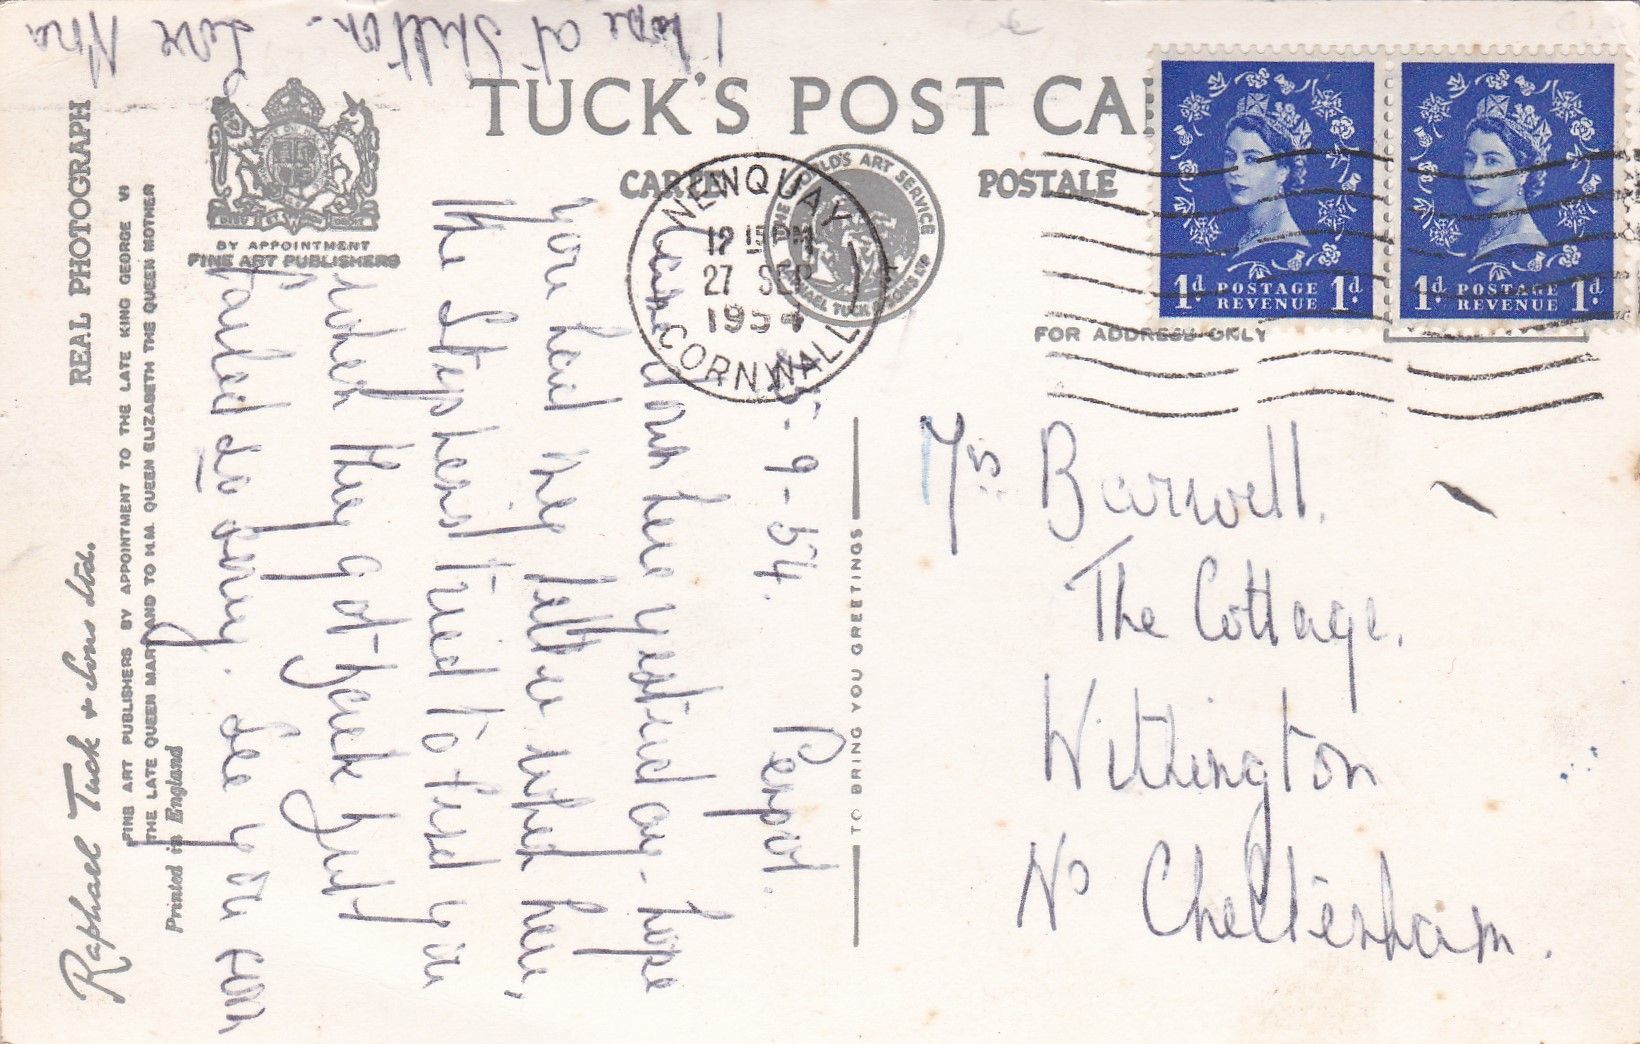 TUCK'S POST CA
CARTE POSTALE
REAL PHOTOGRAPH
BY APPOINTMENT
FINE ART PUBLISHERS
Raphael Tuck & Sons Ltd.
FINE ART PUBLISHERS BY APPOINTMENT TO THE LATE KING GEORGE VI
THE LATE QUEEN MARY AND TO H.M. QUEEN ELIZABETH THE QUEEN MOTHER
Printed in England
NEWQUAY
12 15 PM
27 SEP
1954
CORNWALL
1d POSTAGE REVENUE 1d
1d POSTAGE REVENUE 1d
FOR ADDRESS ONLY
TO BRING YOU GREETINGS
-9-54. Penpol.
down here yesterday - hope
you had my letter when here,
The Stephens tried to find you
when they got back but
failed to say. See you soon
I hope at Shelton. Love Nina
Mrs Barwell.
The Cottage.
Withington
Nr Cheltenham.